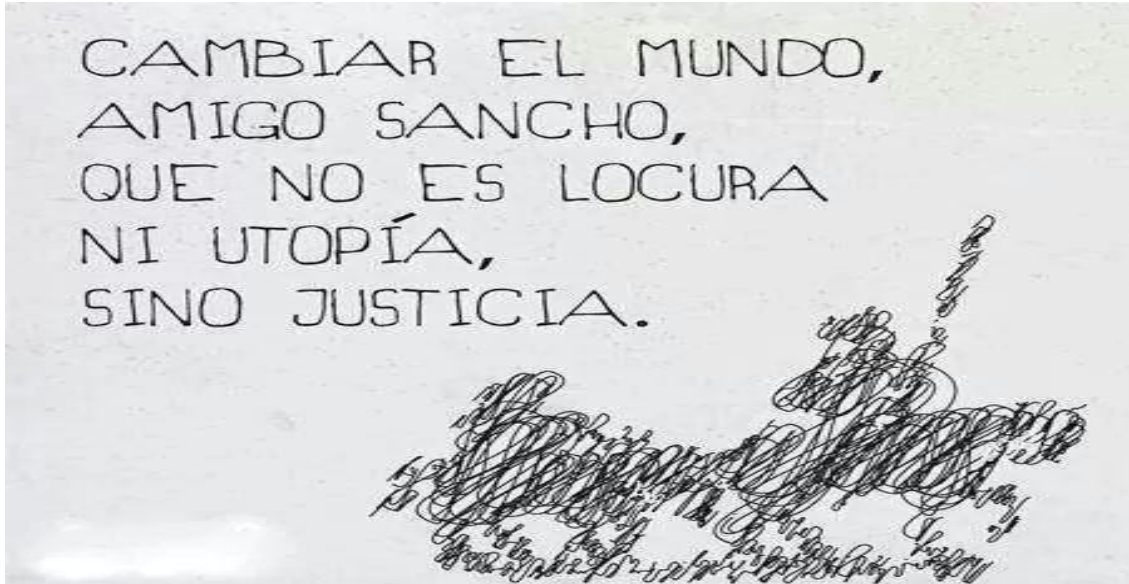 CAMBIAR EL MUNDO,
AMIGO SANCHO,
QUE NO ES LOCURA
NI UTOPÍA,
SINO JUSTICIA.